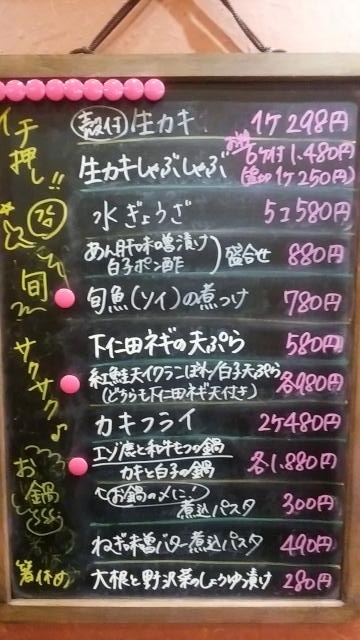 イチ押し!!
殻付 生カキ 1ケ 298円
生カキしゃぶしゃぶ 6ケ付 1,480円
(追加1ケ250円)
水ぎょうざ 5コ 580円
あん肝味噌漬け
白子ポン酢 盛合せ 880円
旬
旬魚(ソイ)の煮つけ 780円
サクサク♪
下仁田ネギの天ぷら 580円
紅鮭天イクラこぼれ/白子天ぷら 各980円
(どちらも下仁田ネギ天付き)
カキフライ 2ケ480円
お鍋
エゾ鹿と和牛もつの鍋
カキと白子の鍋 各1,880円
お鍋の〆に♪
煮込パスタ 300円
ねぎ味噌バター煮込パスタ 490円
箸休め
大根と野沢菜のしょうゆ漬け 280円